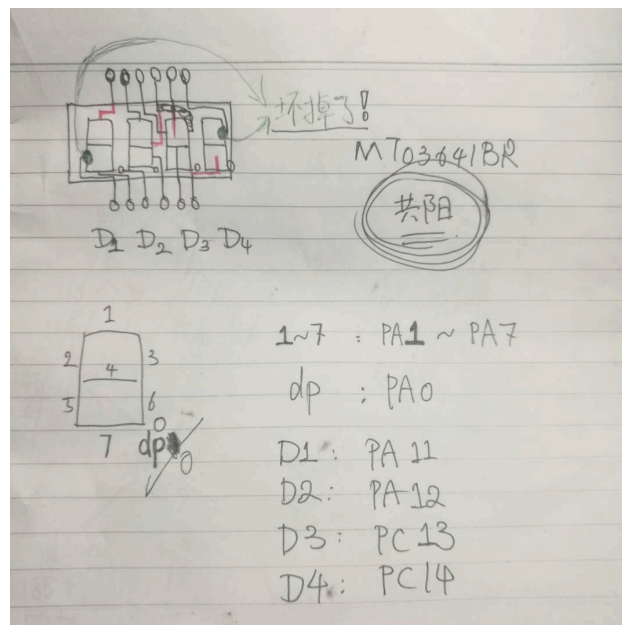 坏掉了!
MT03641BR
共阳
D1 D2 D3 D4
1
2 4 3
5 6
7 dp 0
1~7 : PA1 ~ PA7
dp : PA0
D1: PA11
D2: PA12
D3: PC13
D4: PC14